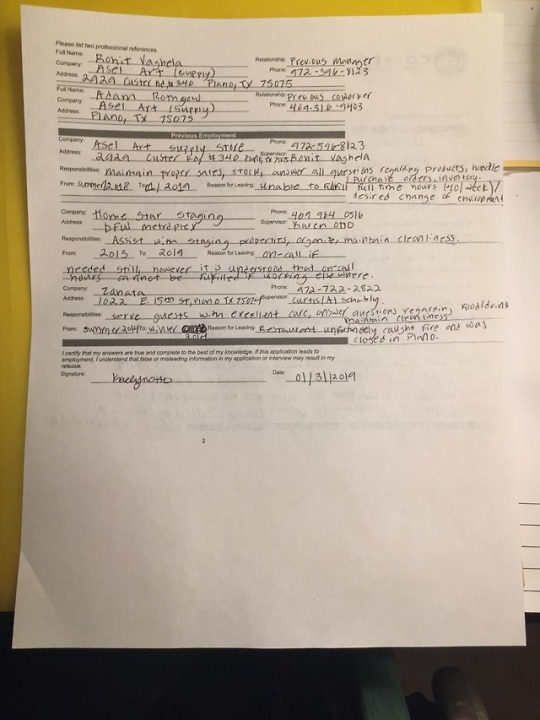 Please list two professional references.
Full Name: Rohit Vaghela Relationship: Previous Manager
Company: Asel Art (Supply) Phone: 972-596-8123
Address: 2929 Custer Rd # 340 Plano, TX 75075
Full Name: Adam Relationship: Previous coworker
Company: Asel Art (Supply) Phone: 469-316-9403
Address: Plano, TX 75075
Previous Employment
Company: Asel Art supply store Phone: 972-596-8123
Address: 2929 Custer Rd # 340 Plano, TX 75075 Supervisor: Rohit Vaghela
Responsibilities: Maintain proper sales, stock, answer all questions regarding products, handle
purchase orders, inventory.
From: Summer/2018 To: 1/2019 Reason for Leaving: Unable to fulfill full time hours (40/week)/
desired change of environment
Company: Home Star Staging Phone: 409 984 0516
Address: DFW metroplex Supervisor: Karen Otto
Responsibilities: Assist with staging properties, organize, maintain cleanliness.
From: 2013 To: 2019 Reason for Leaving: on-call if
needed still, however it is understood that on-call
hours cannot be fulfilled if working elsewhere.
Company: Zanata Phone: 972-722-2822
Address: 1022 E 15th St, Plano TX 75074 Supervisor: Curtis (A)
Responsibilities: serve guests with excellent care, answer questions regarding food/drink
maintain cleanliness
From: Summer 2014 To: Winter 2014 Reason for Leaving: Restaurant unfortunately caught fire and was
closed in Plano.
I certify that my answers are true and complete to the best of my knowledge. If this application leads to
employment, I understand that false or misleading information in my application or interview may result in my
release.
Signature: Date: 01/31/2019
2